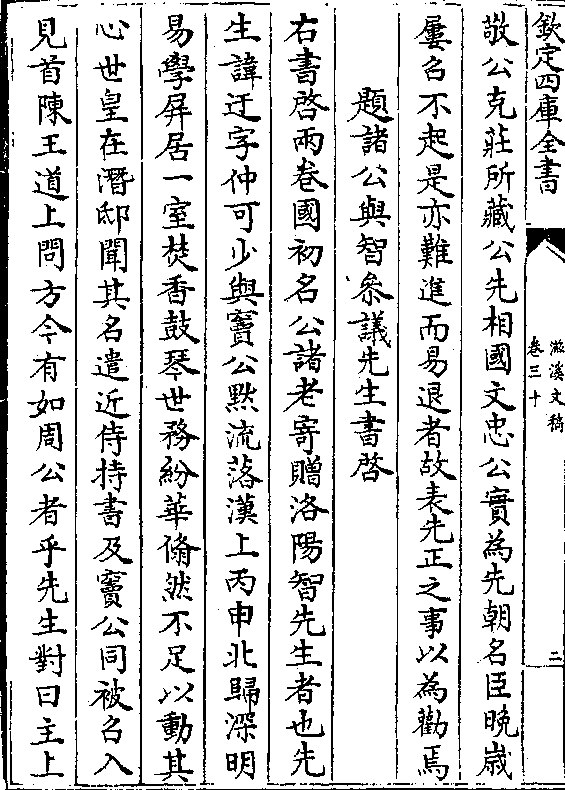 欽定四庫全書
滋溪文稿
卷三十
二
敬公克莊所藏公先相國文忠公實為先朝名臣晚歲
屢召不起是亦難進而易退者故表先正之事以為勸焉
題諸公與智叅議先生書啓
右書啓兩卷國初名公諸老寄贈洛陽智先生者也先
生諱迂字仲可少與竇公黙流落漢上丙申北歸深明
易學屏居一室焚香鼓琴世務紛華翛然不足以動其
心世皇在潛邸聞其名遣近侍持書及竇公同被召入
見首陳王道上問方今有如周公者乎先生對曰主上